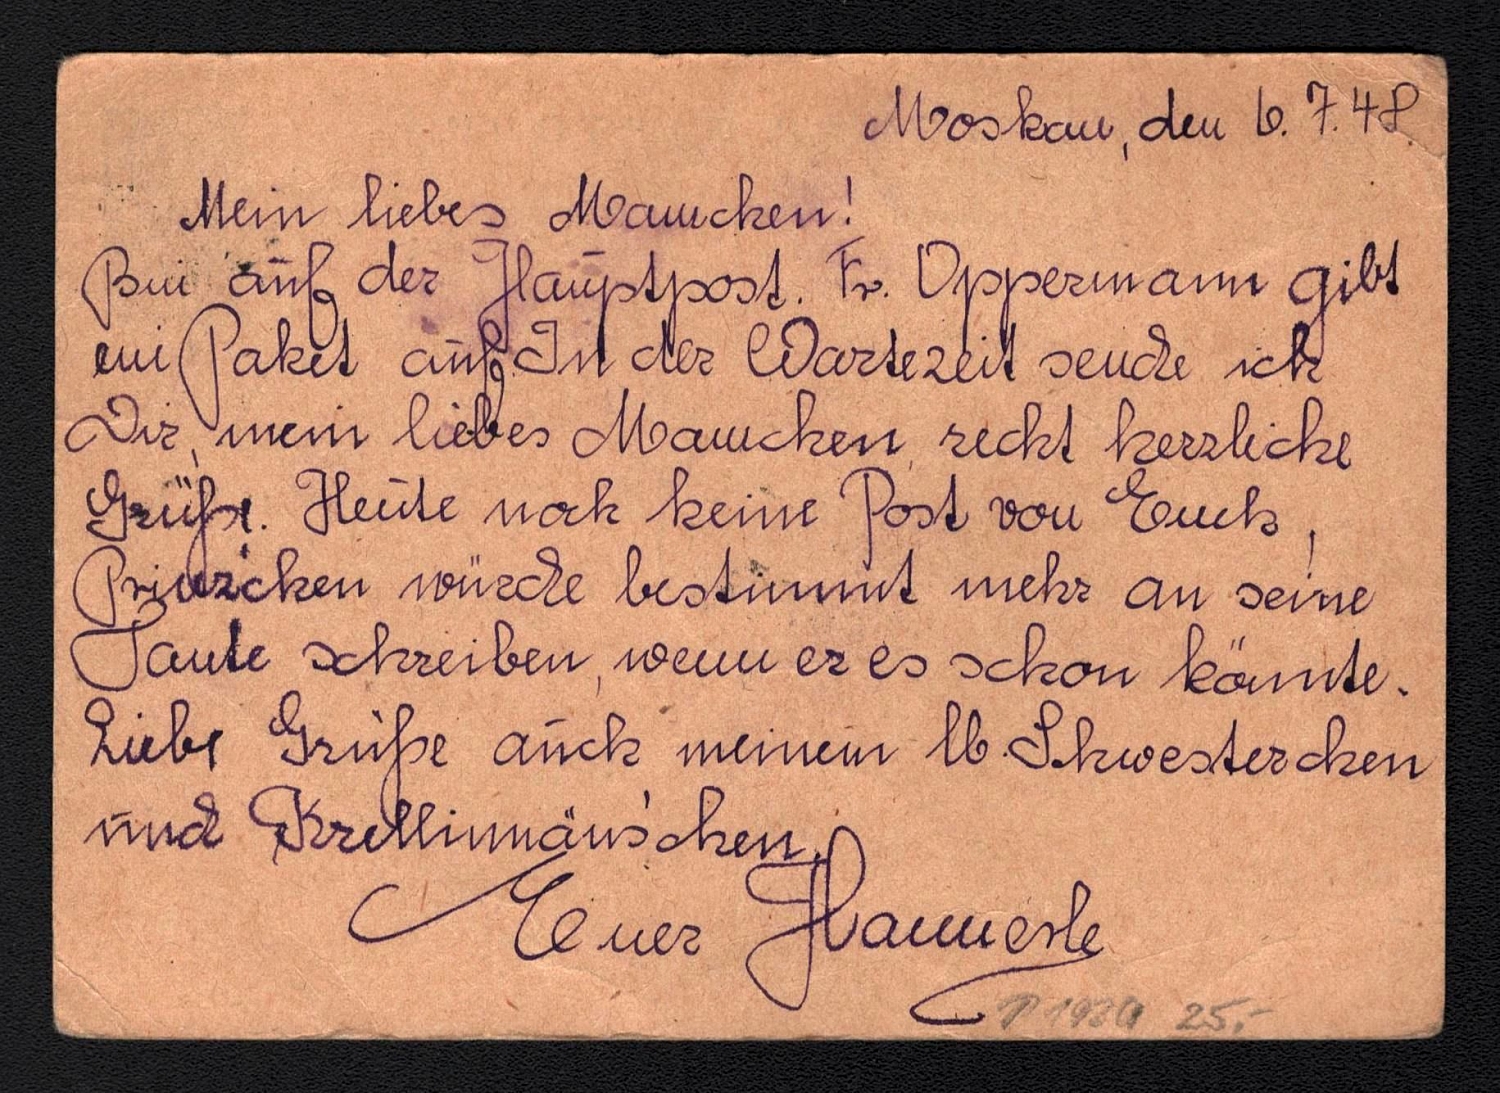 Moskau, den 6. 7. 48
Mein liebes Mamchen!
Bin auf der Hauptpost. Fr. Oppermann gibt
ein Paket auf. In der Wartezeit sende ich
Dir, mein liebes Mamchen, recht herzliche
Grüße. Heute noch keine Post von Euch,
Prinzchen würde bestimmt mehr an seine
Tante schreiben, wenn er es schon könnte.
Liebe Grüße auch meinem lb. Schwesterchen
und Krellinmäuschen.
Euer Hannerle
25.-